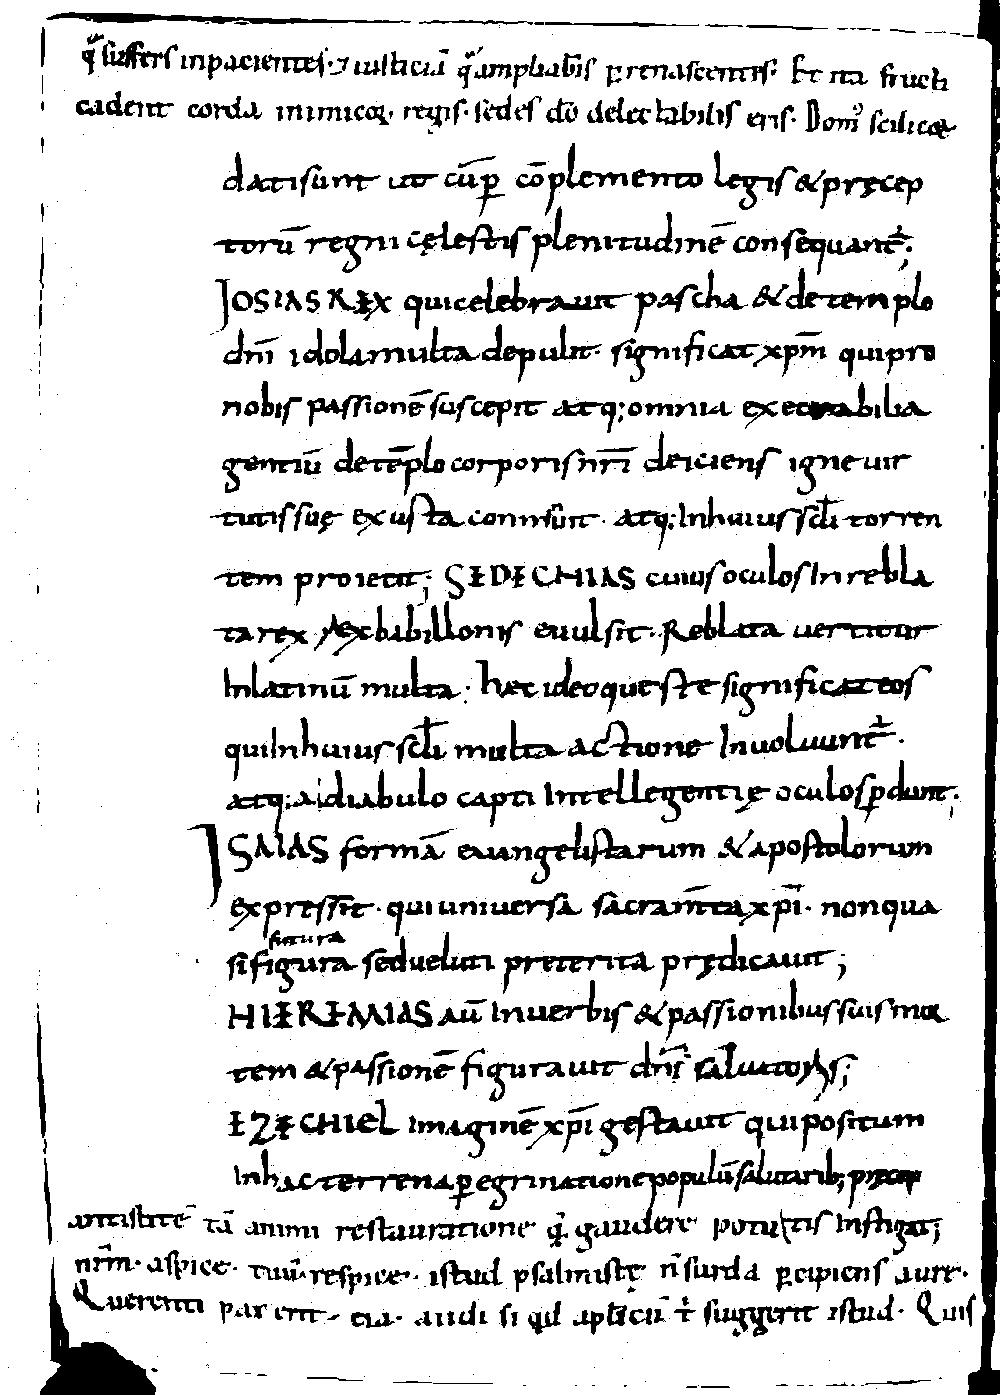 q̃ suffers inpacientes · ⁊ iusticiā q̃ ampliab̄is ꝑ renascentis · Et ita fructi
cadent corda inimicoꝝ · regis · sedes dō delectabilis eris · Domꝰ scilicæ
dati sunt ut cū ꝑ cōplemento legis & pręcep
torū regni cęlestis plenitudinē consequant̄;
JOSIAS REX qui celebrauit pascha & de templo
dn̄i idola multa depulit · significat xpm̄ qui pro
nobis passionē suscepit atq; omnia execrabilia
gentiū de tēplo corporis nr̄i deiciens igne uir
tutis suę exusta cominuit · atq; Inhuius scl̄i torren
tem proiecit; SEDECHIAS cuius oculos In rebla
ta rex babillonis euulsit · Reblata uertitur
In latinū multa · hæc ideoque iste significat eos
qui In huius scl̄i multa actione Inuoluunt̄ ·
atq; a diabulo capti Intellegentię oculos ꝑdunt ·
ISAIAS formā euangelistarum & apostolorum
expressit · qui uniuersa sacram̄ta xp̄i · non qua
futura
si figura sed ueluti preterita prędicauit;
HIEREMIAS aū In uerbis & passionibus suis mor
tem & passionē figurauit dn̄i saluatoris;
EZECHIEL Imaginē xp̄i gestauit qui positum
In hac terrena ꝑegrinatione populū salutarib; pręcep
antistitē tā animi restauratione q̄ gaudere potu tis Instigat;
nr̄m · aspice · tuū · respice · istud psalmistę n̄ surda ꝑcipiens aure ·
Querenti parent · eia · audi si qd aplīcū t̄ suggerit istud · Quis